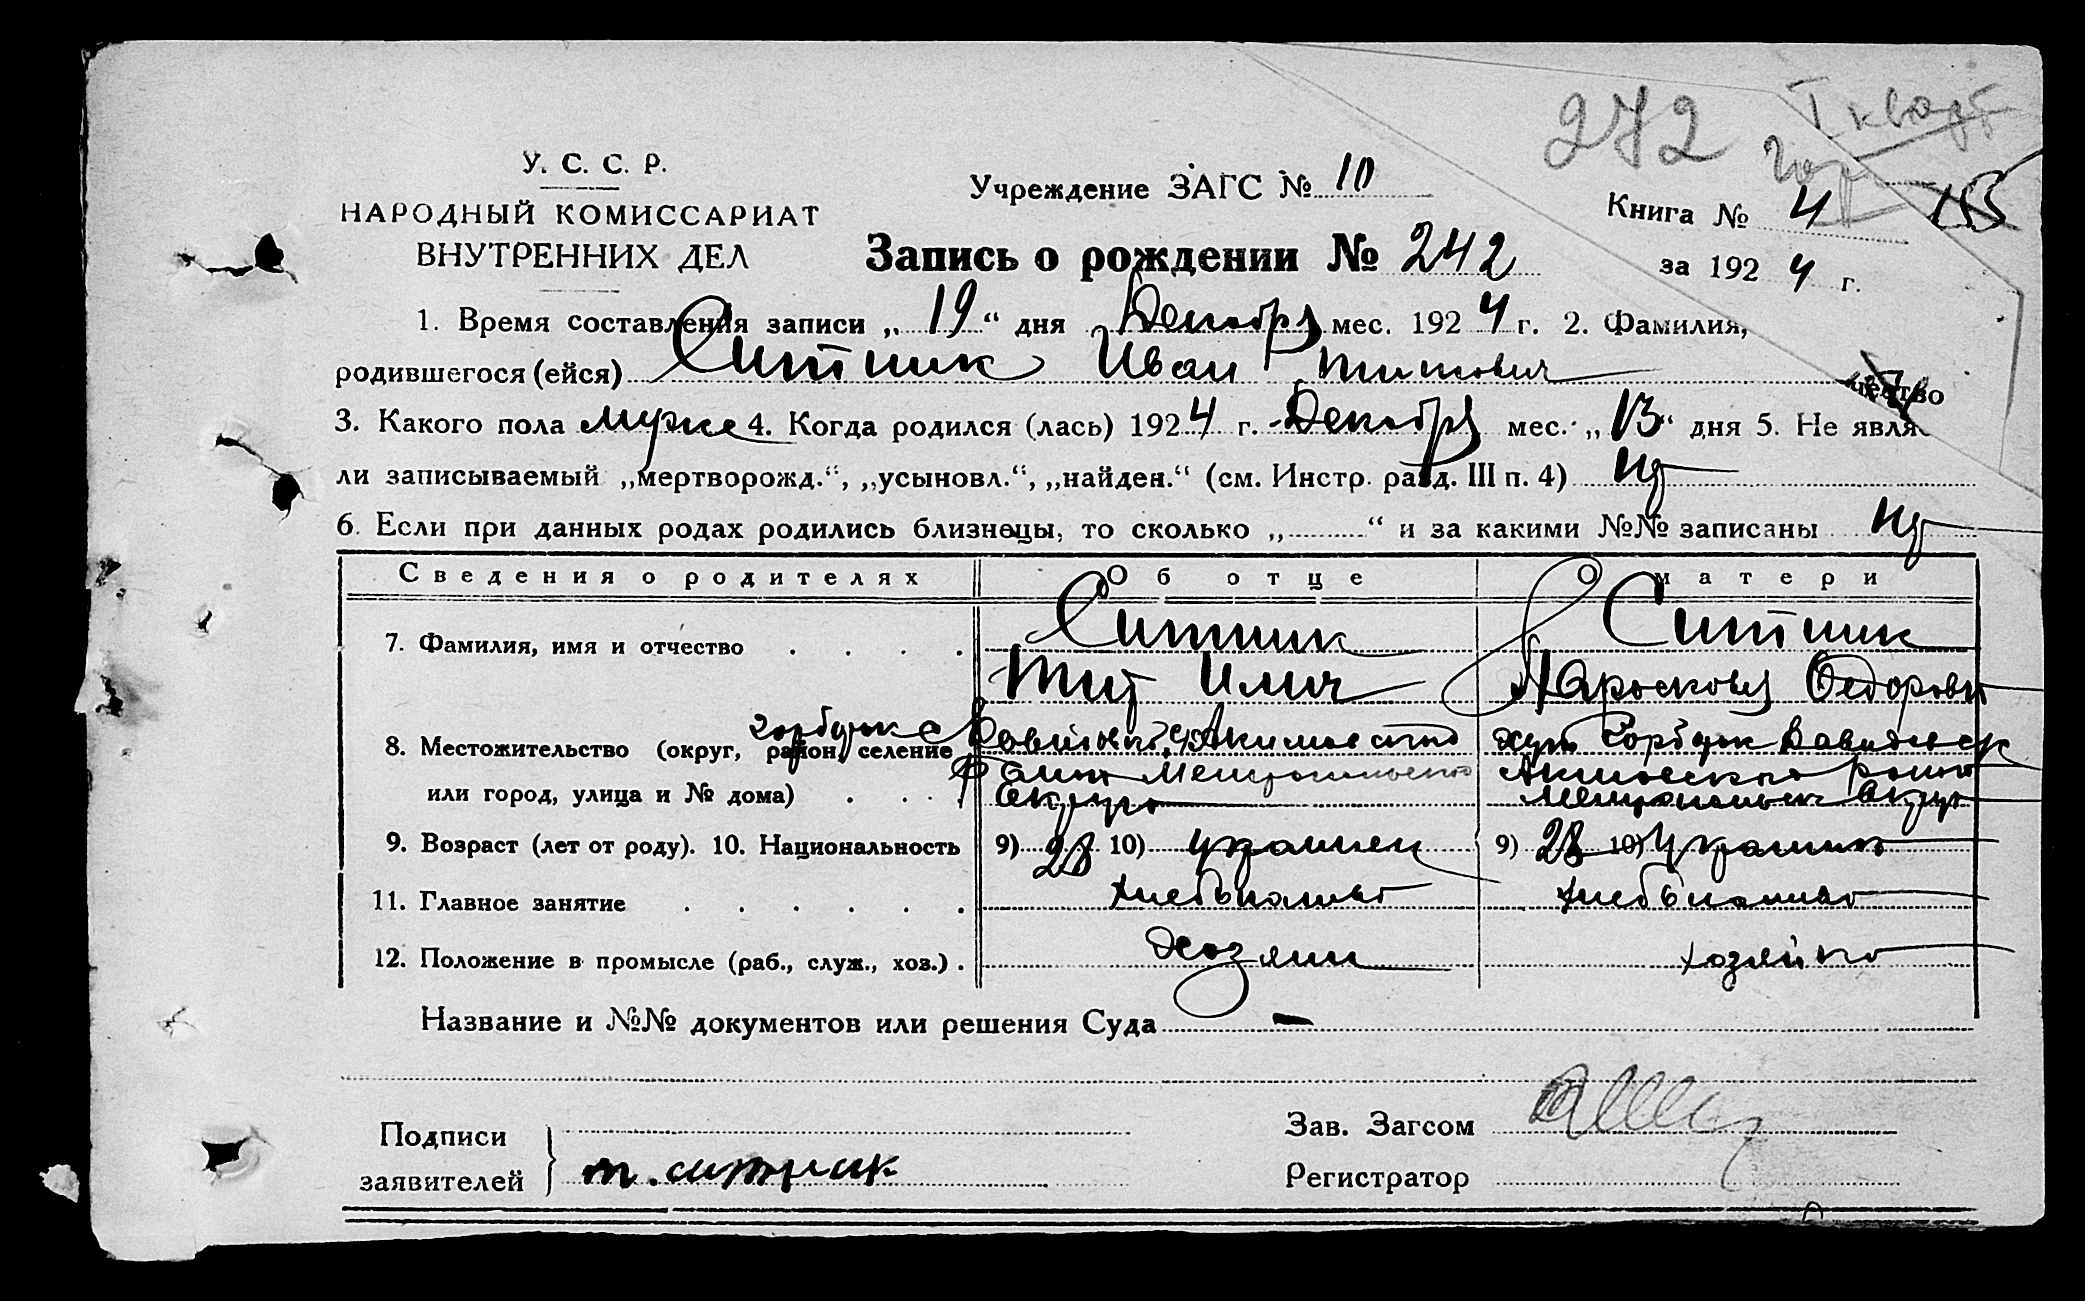 272
I кварт
У. С. С. Р.
НАРОДНЫЙ КОМИССАРИАТ
ВНУТРЕННИХ ДЕЛ
Учреждение ЗАГС № 10
Книга № 4
за 1924 г.
Запись о рождении № 242
1. Время составления записи „19“ дня Декабря мес. 1924 г. 2. Фамилия,
родившегося (ейся) Ситник Иван Титович
чество
3. Какого пола муже 4. Когда родился (лась) 1924 г. Декабря мес. „13“ дня 5. Не явля
ли записываемый „мертворожд.“, „усыновл.“, „найден.“ (см. Инстр. разд. III п. 4)
6. Если при данных родах родились близнецы, то сколько „ “ и за какими №№ записаны
Сведения о родителях Об отце О матери
7. Фамилия, имя и отчество Ситник Ситник
Тит Илич Парасковя Федоровн
8. Местожительство (округ, район, селение
или город, улица и № дома) Округа
9. Возраст (лет от роду). 10. Национальность 9) 28 10) украинец 9) 28 10) украинк
11. Главное занятие
12. Положение в промысле (раб., служ., хоз.) Хозяин хозяйка
Название и №№ документов или решения Суда -
Подписи
заявителей
т. ситник
Зав. Загсом
Регистратор